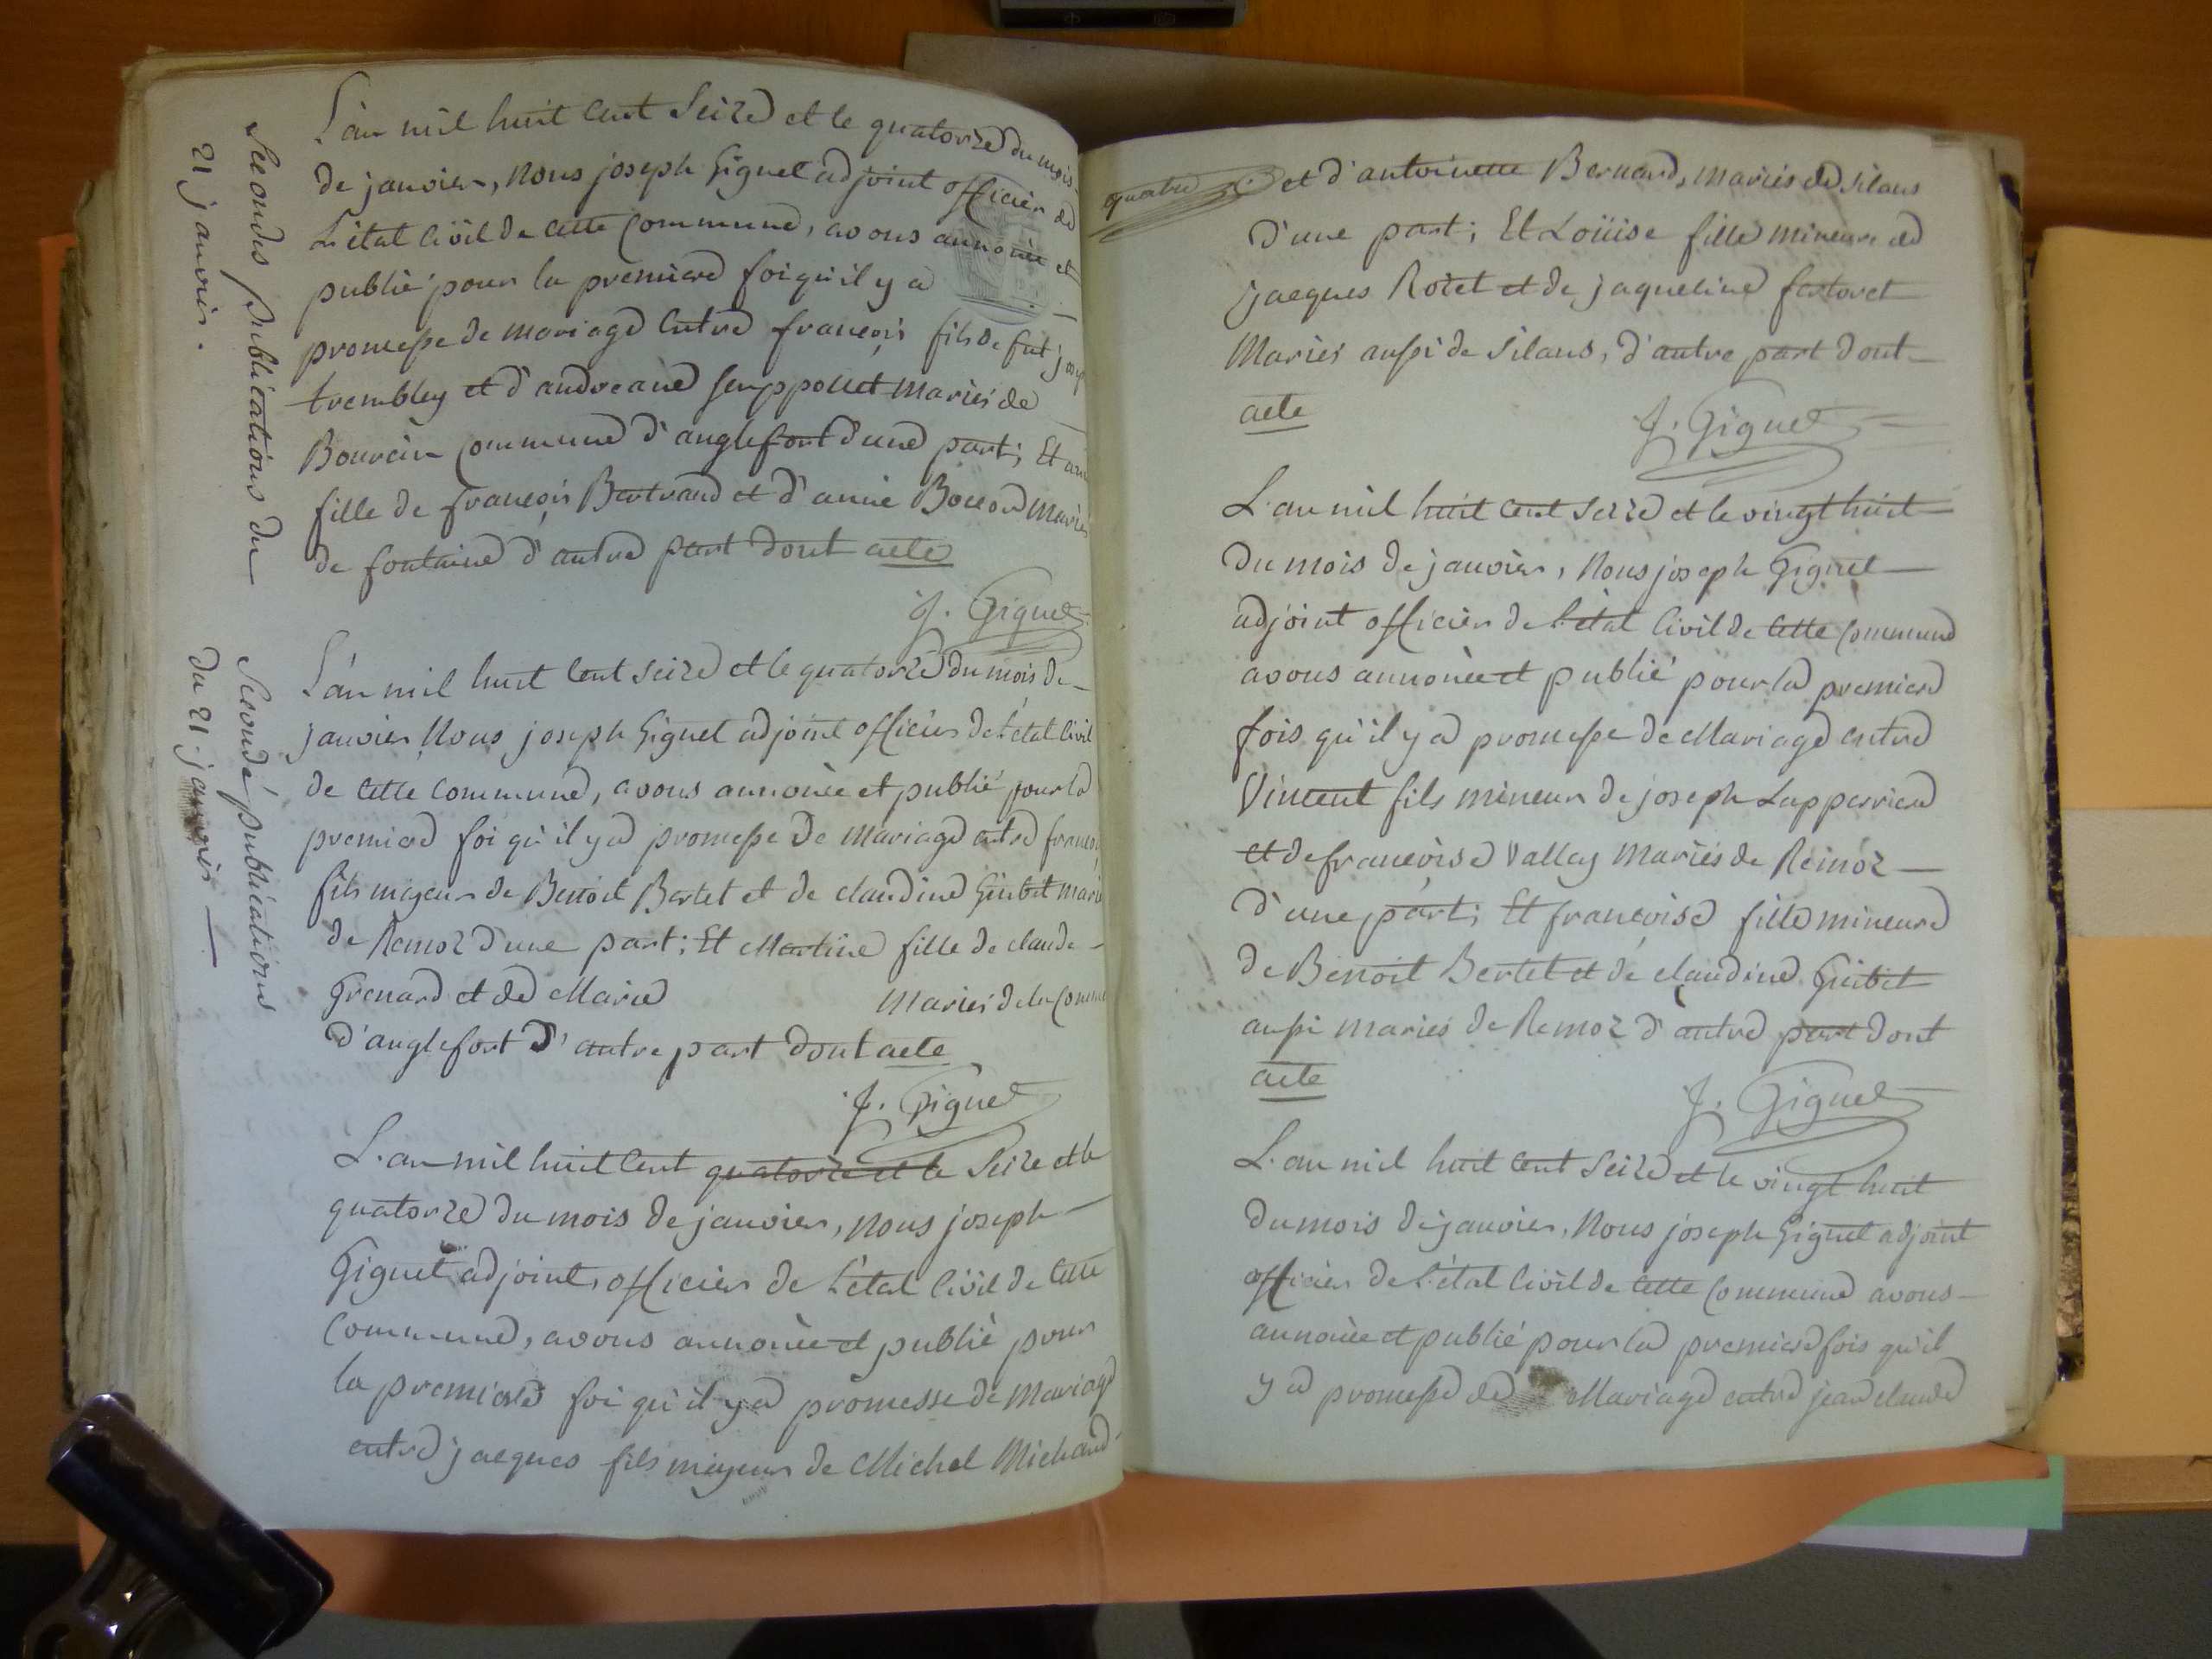 Secondes publications du
21 janvier.
L'an mil huit cent seize et le quatorze du mois
de janvier, nous joseph Giguet adjoint officier de
L'état civil de cette commune, avons annoncé et
publié pour la premiere foi qu'il y a
promesse de mariage entre françois fils de fut josep
trembley et d'andreane mariés de
commune d'anglefort d'une part; Et
fille de françois Bertrand et d'anne mariés
de fontaine d'autre part dont acte
J. Giguet
Seconde publications
du 21 janvier
L'an mil huit cent seize et le quatorze du mois de
janvier, Nous joseph Giguet adjoint officier de l'état civil
de cette commune, avons annoncé et publié pour la
premiere foi qu'il y a promesse de mariage entre françoi
fils majeur de Benoit Bertet et de claudine Guibet marié
de Remoz d'une part; Et Martine fille de claude
Grenard et de Marie mariés de la comm
d'anglefort d'autre part dont acte
J. Giguet
L'an mil huit cent quatorze et le seize et le
quatorze du mois de janvier, nous joseph
Giguet adjoint, officier de l'état civil de cette
commune, avons annoncé et publié pour
la premiere foi qu'il y a promesse de mariage
entre jacques fils majeur de Michel Michaud
quatre
et d'antoinette Bernard, mariés de silans
d'une part; Et Loüise fille mineure de
jacques Rotet et de jaqueline
Mariés aussi de silans, d'autre part dont
acte
J. Giguet
L'an mil huit cent seize et le vingt huit
du mois de janvier, Nous joseph Giguet
adjoint officier de l'état civil de cette commune
avons annoncé et publié pour la premiere
fois qu'il y a promesse de Mariage entre
Vincent fils mineur de joseph Lapperriere
et de françoise Vallay mariés de Remoz
d'une part; Et françoise fille mineure
de Benoit Bertet et de claudine Guibet
aussi mariés de Remoz d'autre part dont
acte
J. Giguet
L'an mil huit cent seize et le vingt huit
du mois de janvier, Nous joseph Giguet adjoint
officier de l'état civil de cette commune avons
annoncé et publié pour la premiere fois qu'il
y a promesse de Mariage entre jean claude